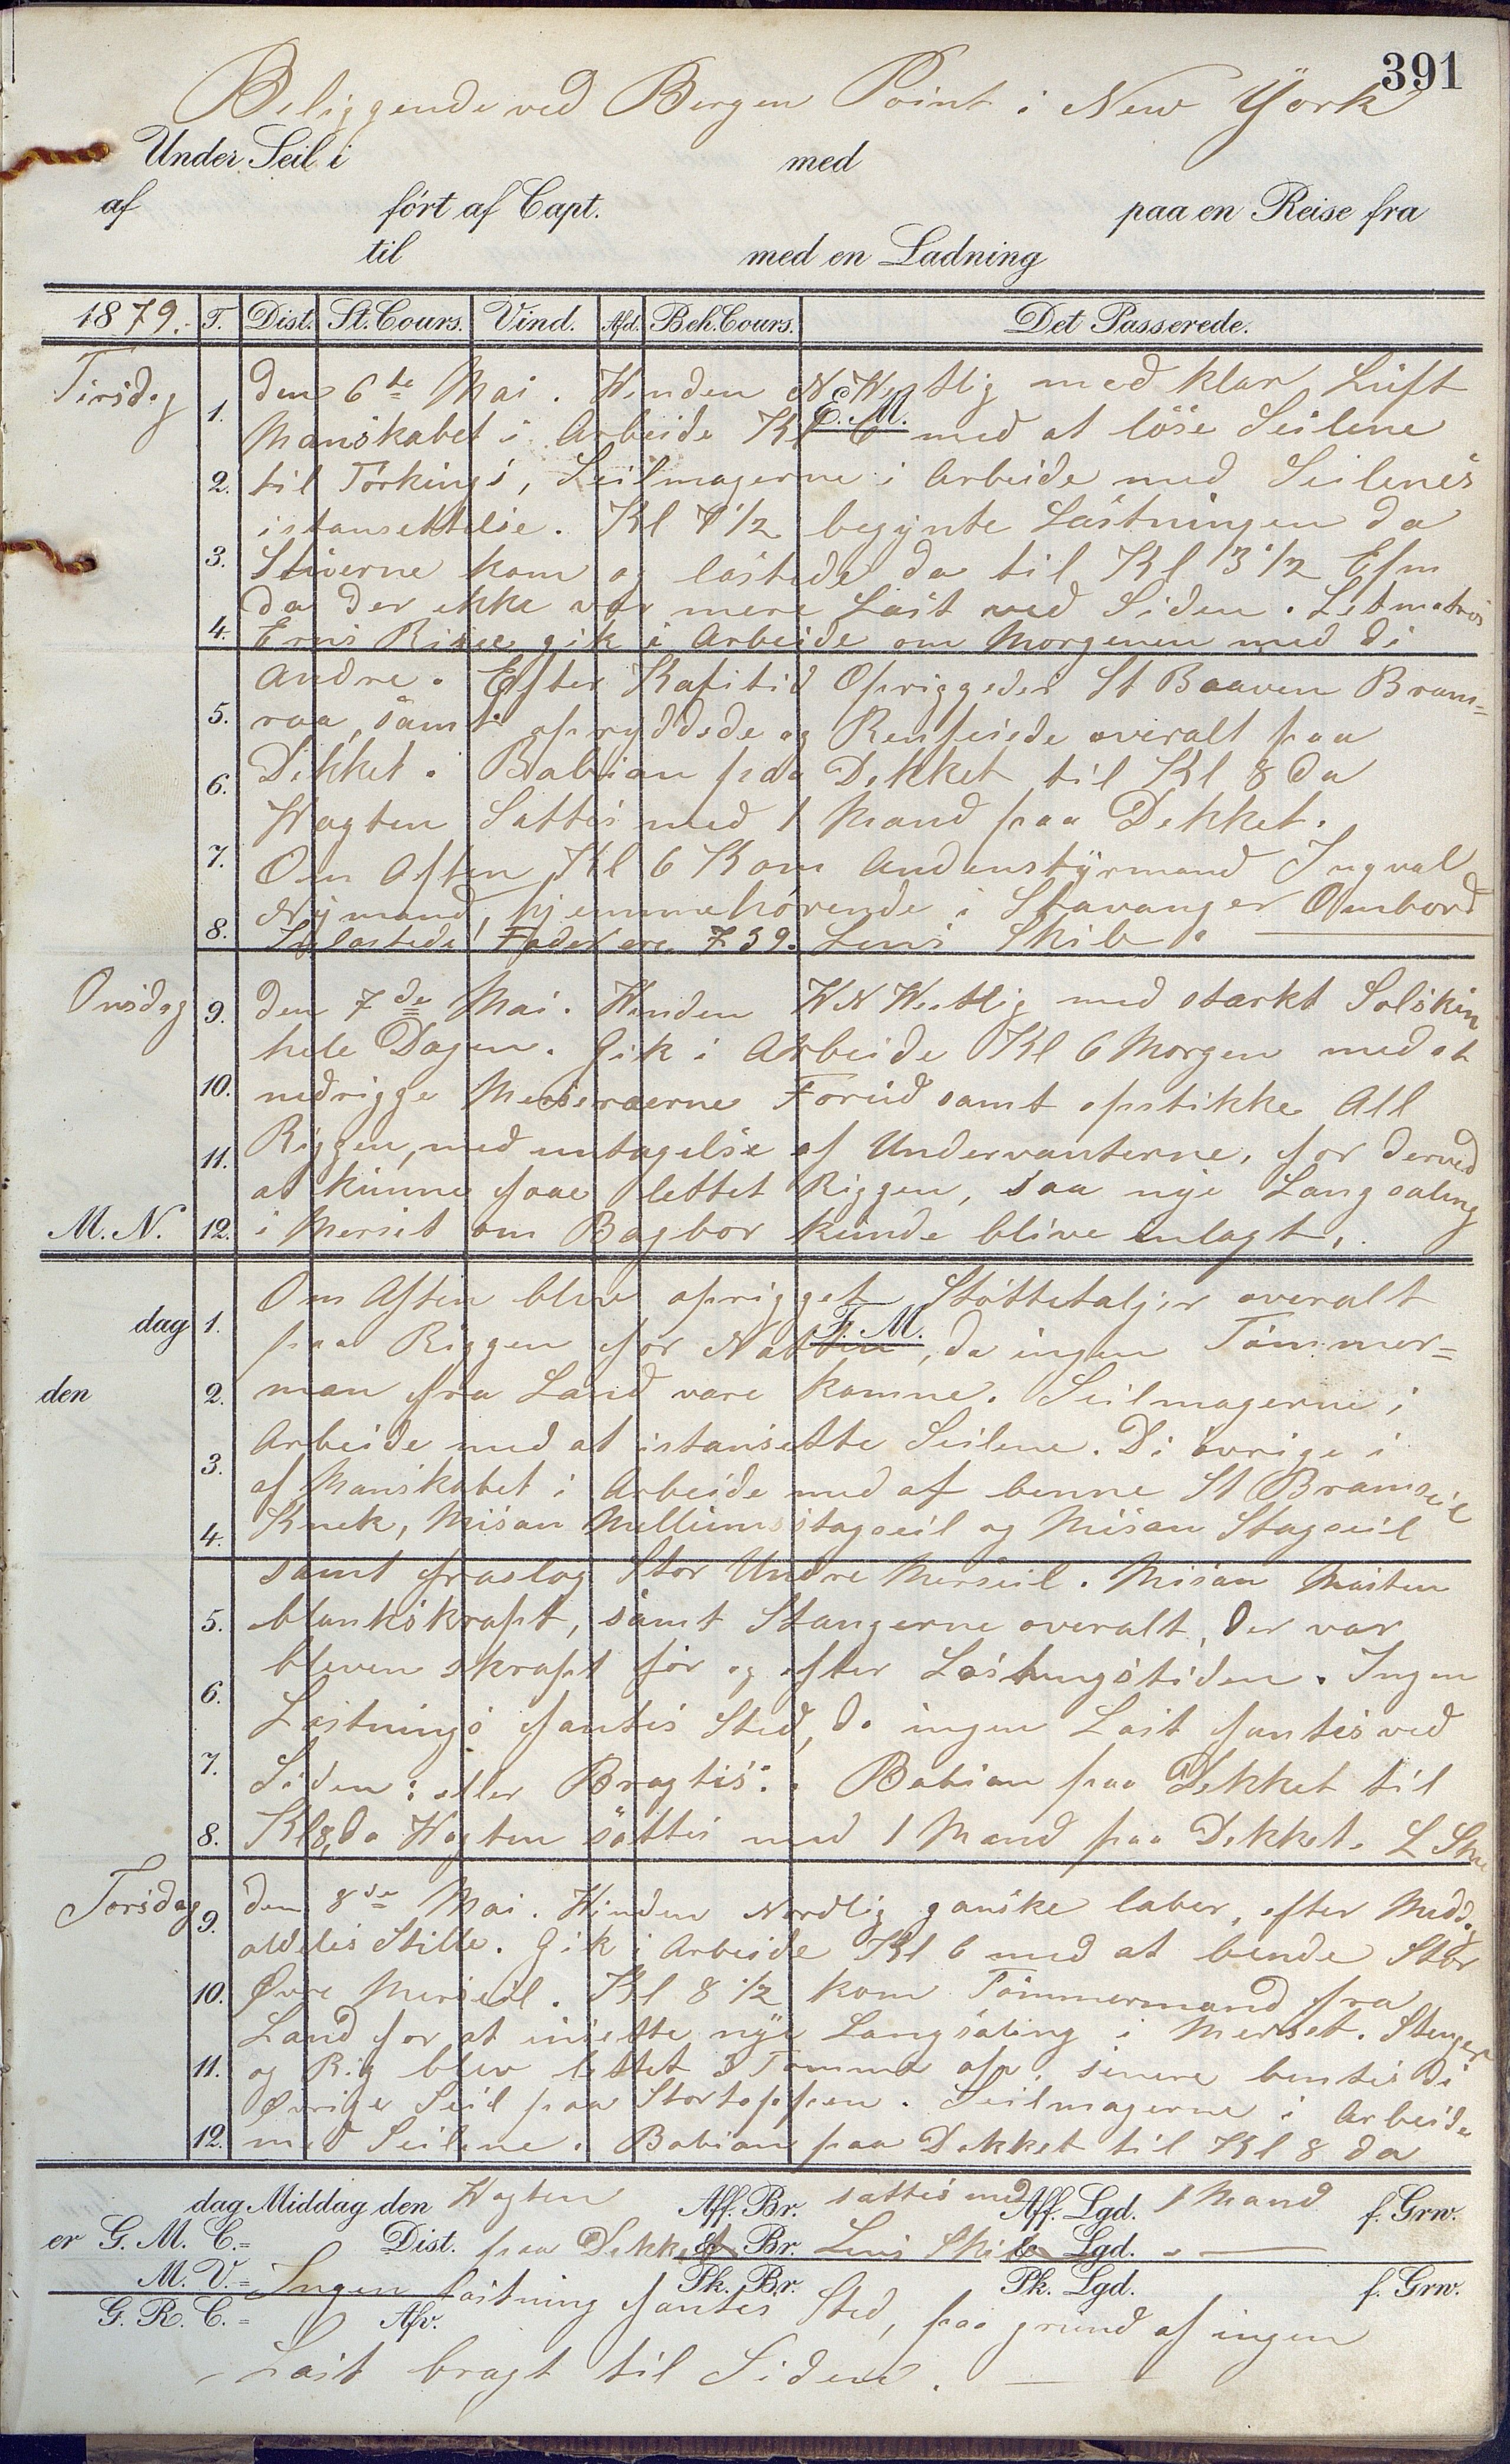 391
Beliggende ved Bergen Point i New York
Under Seil i med
af ført af Capt. paa en Reise fra
til med en Ladning
1879. T. Dist. St. Cours. Vind. Afd. Beh. Cours. Det Passerede.
Tirsdag den 6te Mai. Winden N Westlig med klar Luft
1. E. M.
Manskabet i Arbeide Kl 6 med at löse Seilene
2. til Törkings, Seilmagerne i Arbeide med Seilenes
istansettelse. Kl 7 1/2 begynte Lastningen da
3. Stuerne kom og lastede da til Kl 3 1/2 Efm
da der ikke var mere Last ved Siden. Letmatros
4. Erns gik i Arbeide om Morgenen med di
Andre. Efter Kafitid Opriggedes St Baaven Bram=
5. raa, samt opryddede og Renfeiede overalt paa
6. Dekket. Babian paa Dekket til Kl 8 da
Wagten Sattes med 1 Mand paa Dekket.
7. Om Aften Kl 6 Kom Andenstyrmand Ingval
Nymand, hjemmehörende i Stavanger Ombord
8. Fade 739. Lens Skib.
Onsdag 9. den 7de Mai. Winden WN Westlig med starkt Solskin
hele Dagen. Gik i Arbeide Kl 6 Morgen med at
10. nedrigge Merseraerne Forud samt opstikke All
11. Riggen, med untagelse af Undervanterne, for derved
at kunne faae lettet Riggen, saa nye Langsaling
M. N. 12. i Merset om Bagbor kunde blive inlagt.
Om Aften blev oprigget Støttetaljer overalt
dag 1. F. M.
paa Riggen for Natten, da ingen Tömmer=
den 2. man fra Land vare komne. Seilmagerne i
Arbeide med at istansette Seilene. Di övrige i
3. af Manskabet i Arbeide med af benne St Bramseil
4. Knek, Misan Mellumsstagseil og Misan Stagseil
samt fraslog Stor Undre Merseil. Misan Masten
5. blankskrapt, samt Stangerne overalt, der var
bleven skrapt før og efter Lastningstiden. Ingen
6. Lastnings fantes Sted, da ingen Last fantes ved
7. Siden: eller Bragtes. Babian paa Dekket til
8. Kl 8, da Wagten sattes med 1 Mand paa Dekket. L Skib
Torsdag 9. den 8de Mai. Winden Nordlig ganske laber, efter Middag
aldeles Stille. Gik i Arbeide Kl 6 med at bende Stor
10. Øvre Merseil. Kl 8 1/2 kom Tömmermand fra
Land for at insette nye Langsaling i Merset. Stenger
11. og Rig blev lettet 3 Tomme op, senere bentes di
Øvrige Seil paa Stortoppen. Seilmagerne i Arbeide
12. med Seilene. Babian paa Dekket til Kl 8 da
dag Middag den Wagten Aff. Br. sattes med Aff. Lgd. 1 Mand f. Grw.
er G. M. C.= Dist. paa Dekket & Br. Lens Skib & Lgd.
M. V.= Pk. Br. Pk. Lgd. f. Grw.
G. R. C.= Afv.
Ingen Lastning fantes Sted, paa grund af ingen
Last bragt til Siden.